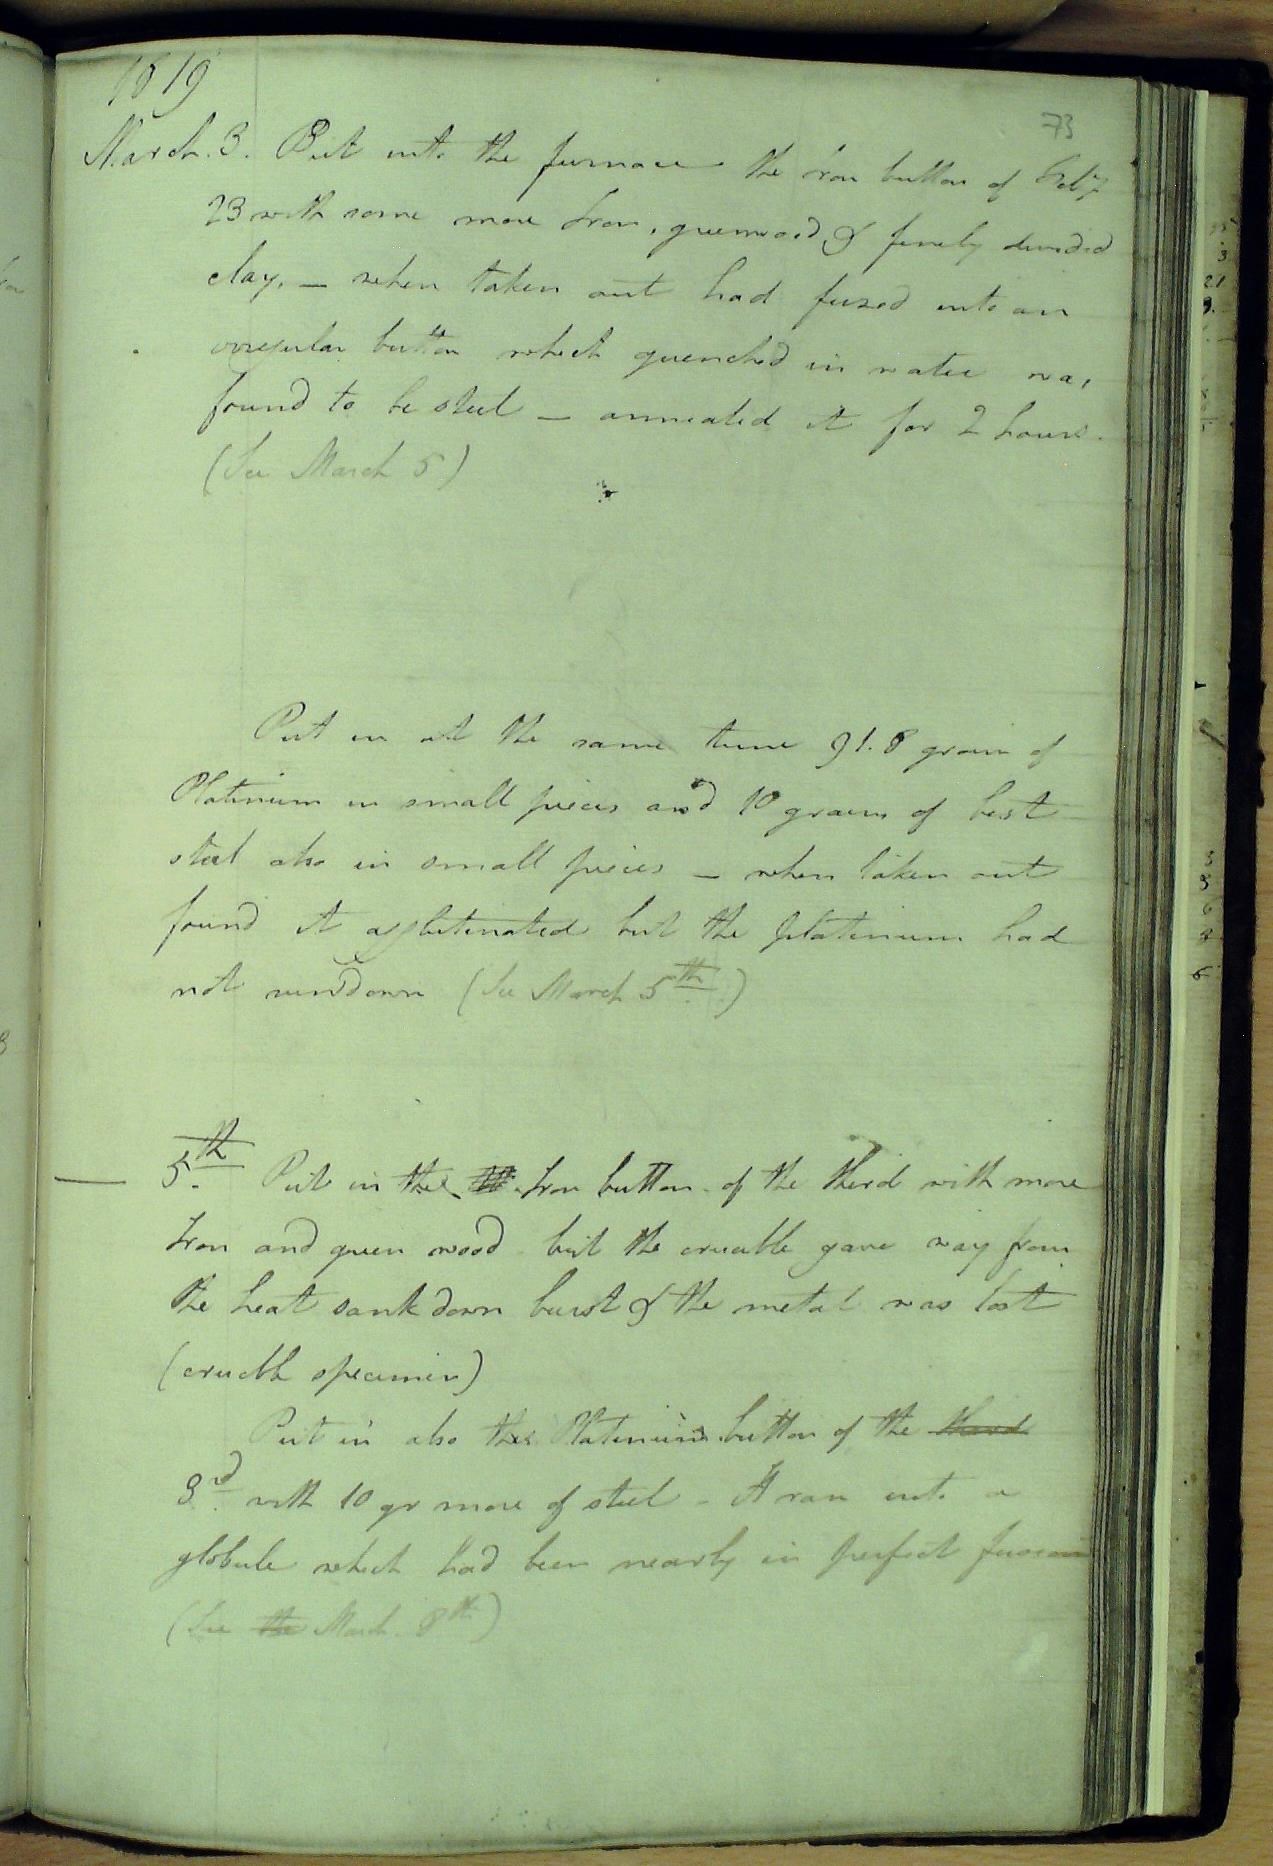 1819
73
March. 3. Put into the furnace the Iron button of Feby
23 with some more Iron, greenwood & finely divided
clay, — when taken out had fuzed into an
irregular button which quenched in water was
found to be steel — annealed it for 2 hours.
(See March 5)
Put in at the same time 91.8 grain of
Platinum in small pieces and 10 grains of best
steel also in small pieces — when taken out
found it agglutinated but the platinum had
not run down (See March 5th.)
5th. Put in the Iron button of the third with more
Iron and green wood but the crucible gave way from
the heat sank down burst & the metal was lost
(crucible specimen)
Put in also the Platinum button of the third
3rd with 10 gr more of steel - It ran into a
globule which had been nearly in perfect fusion
(See the March. 8th)